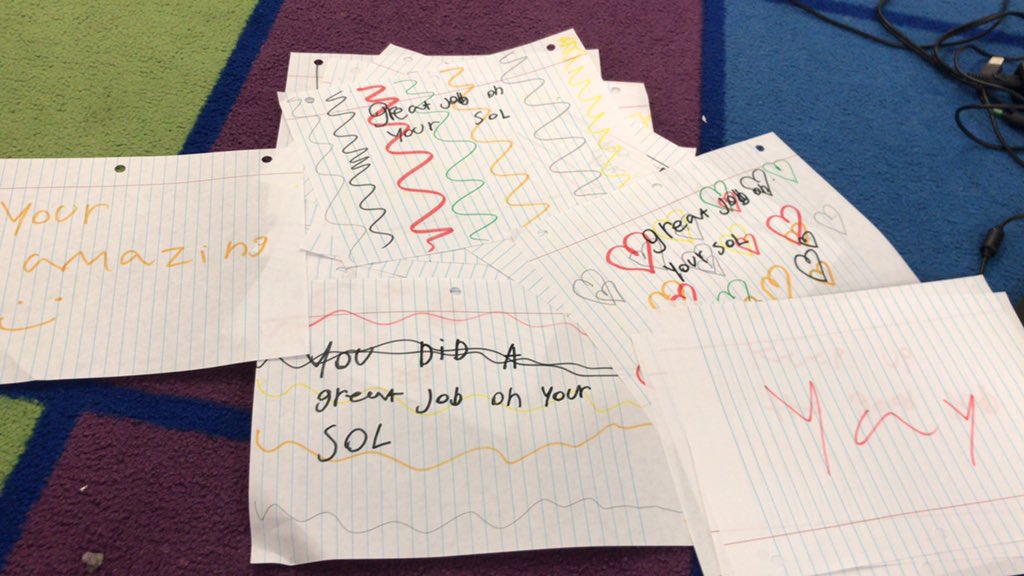 great job on
your SOL
great job on
your SOL
Your
amazing
You DiD A
great Job on your
SOL
Yay